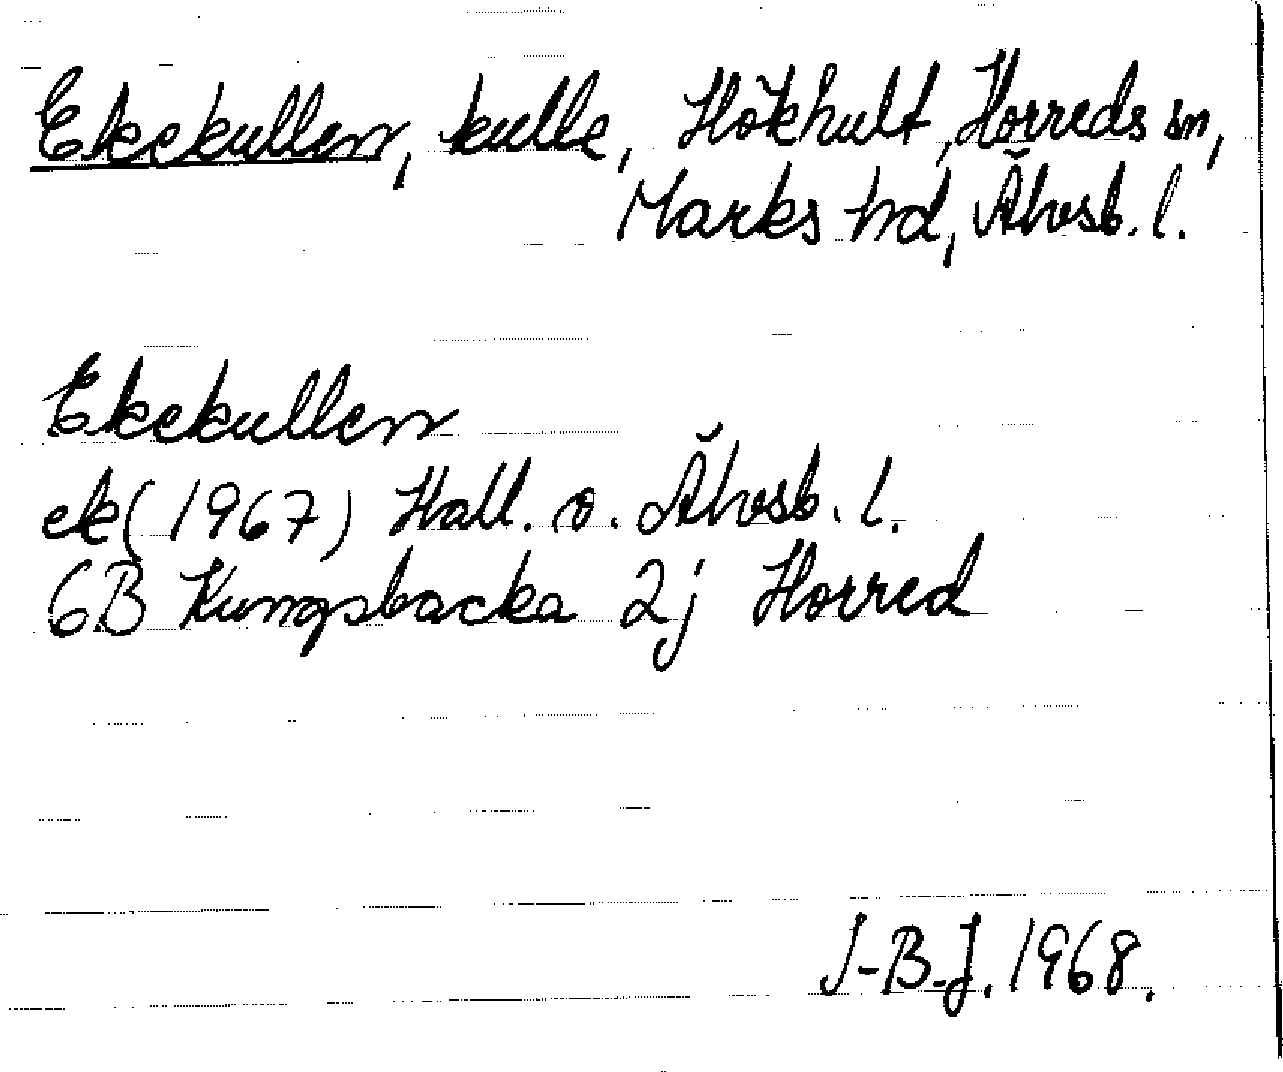 Ekekullen, kulle, Hökhult, Horreds sn,
Marks hd, Älvsb. l.
Ekekullen
ek (1967) Hall. o. Älvsb. l.
6B Kungsbacka 2j Horred
I-B.J. 1968.